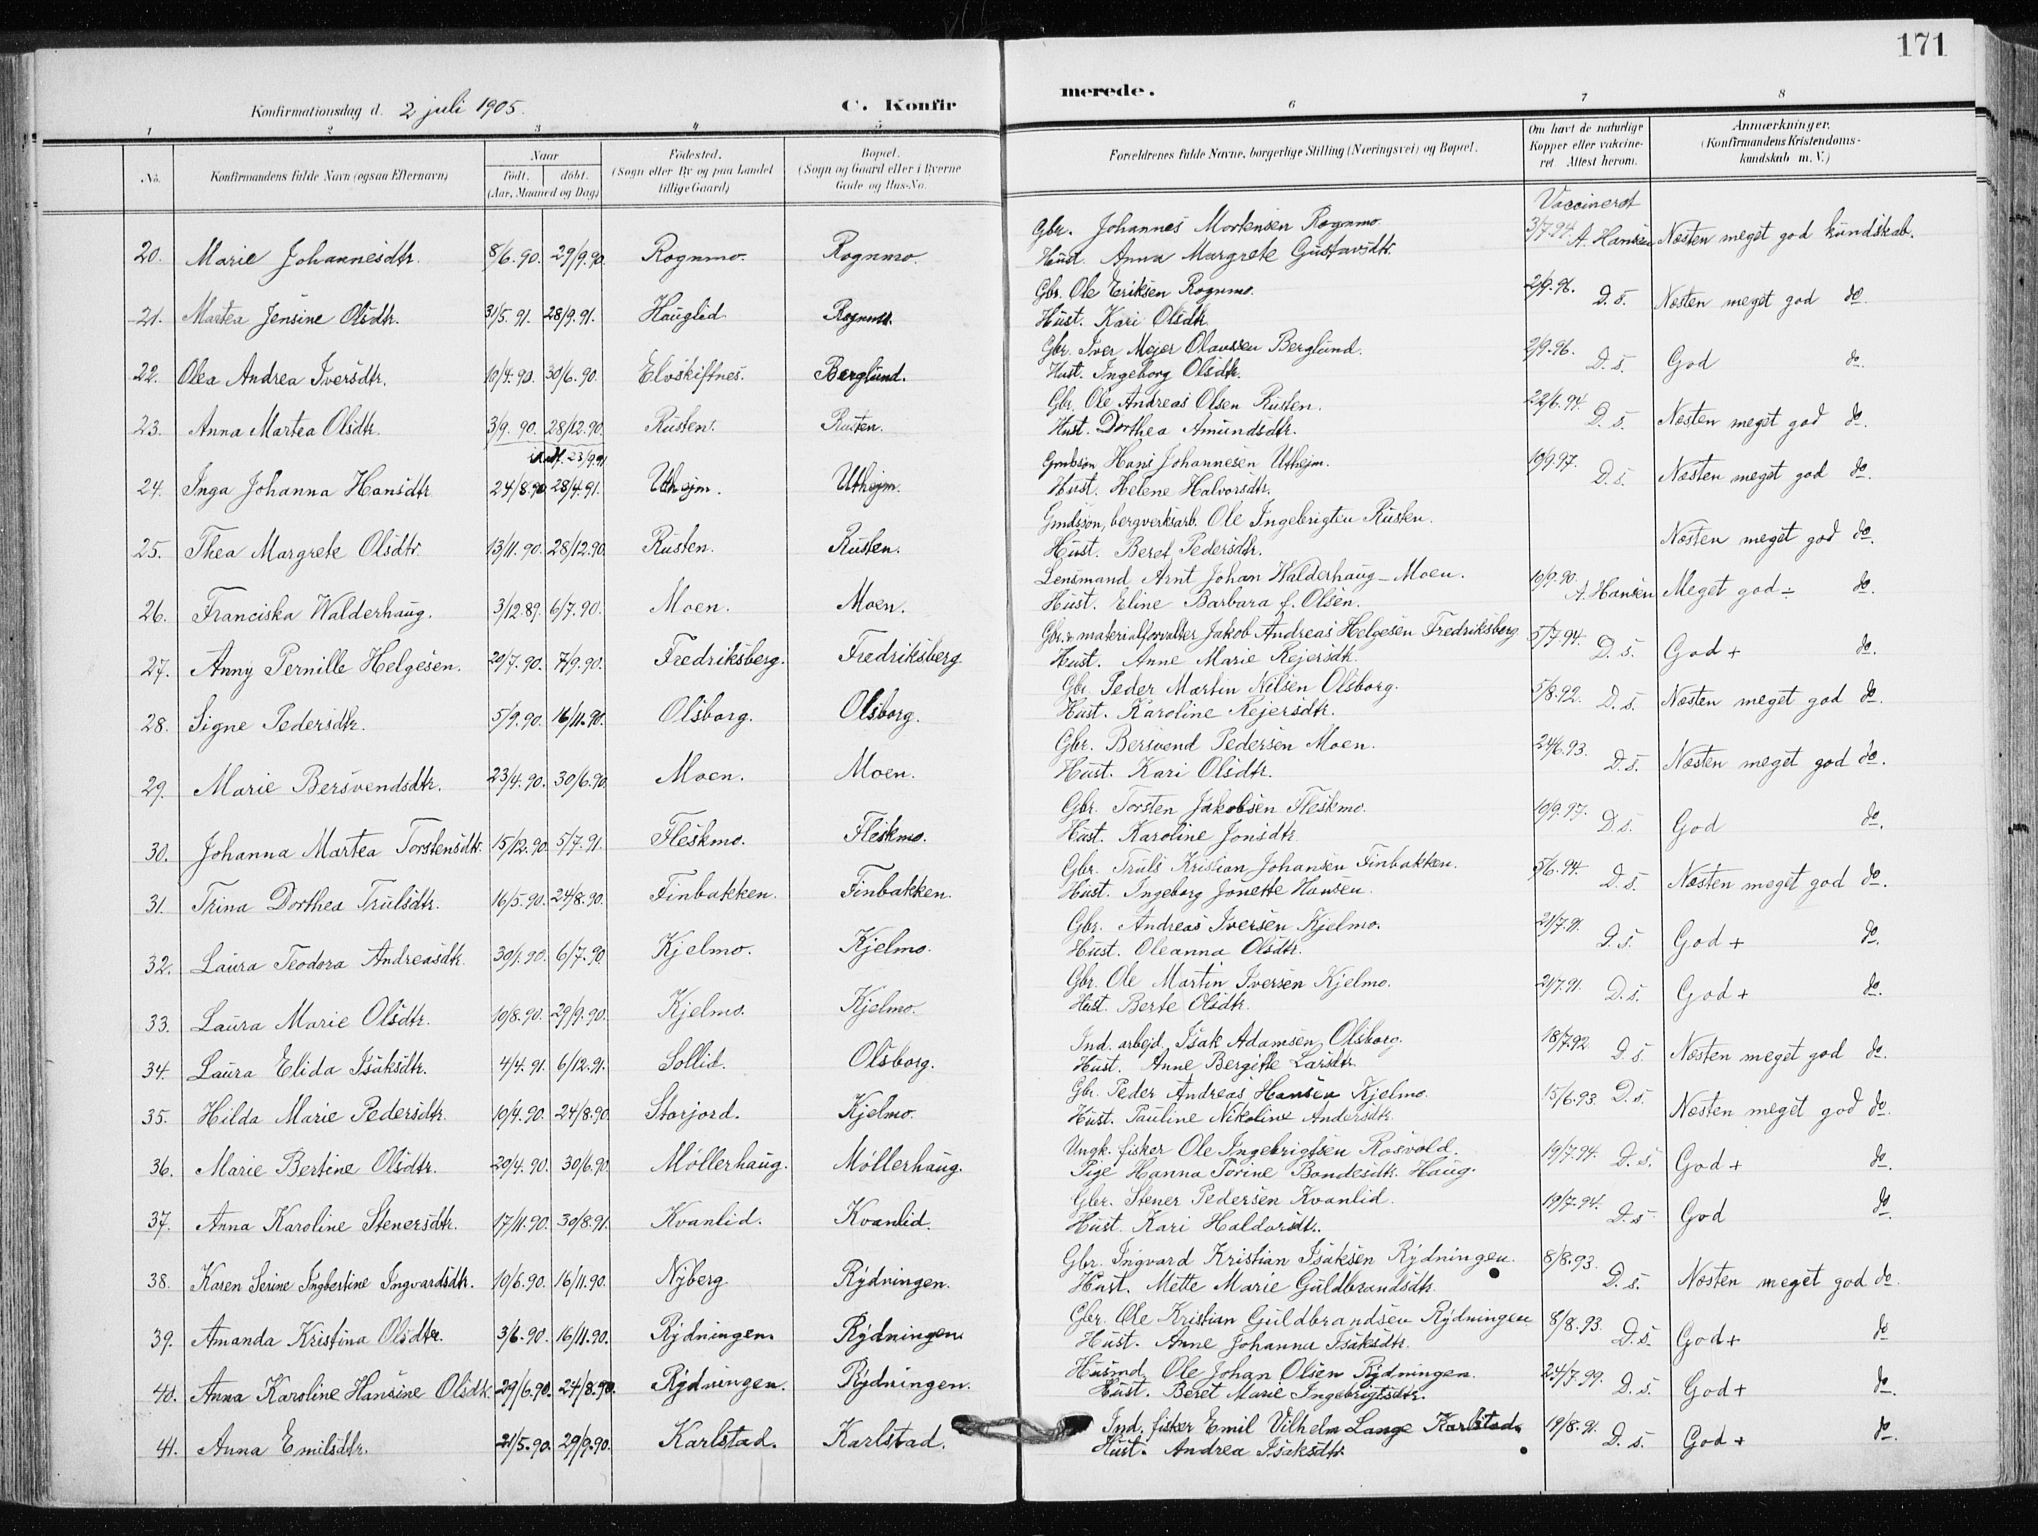 171
Konfirmationsdag d. 2 juli 1905.
C. Konfirmerede.
1 2 3 4 5 6 7 8
No. Konfirmandens fulde Navn (ogsaa Efternavn) Naar født. døbt. (Aar, Maaned og Dag) Fødested. (Sogn eller By og paa Landet tillige Gaard) Bopæl. (Sogn og Gaard eller i Byerne Gade og Hus-No. Forældrenes fulde Navne, borgerlige Stilling (Næringsvei) og Bopæl. Om havt de naturlige Kopper eller vakcineret. Attest herom. Anmærkninger. (Konfirmandens Kristendomskundskab m. V.)
Vaccineret
20. Marie Johannesdtr. 8/6.90. 29/9.90. Rognmo. Rognmo. Gbr. Johannes Mortensen Rognmo. 3/7.94. A. Hansen Næsten meget god kundskab.
Hust. Anna Margrete Gustavsdtr.
21. Martea Jensine Olsdtr. 31/5.91. 28/9.91. Hauglid. Rognmo. Gbr. Ole Eriksen Rognmo. 2/9.96. D. s. Næsten meget god do.
Hust. Kari Olsdtr.
22. Olea Andrea Iversdtr. 10/4.90. 30/6.90. Elvskiftnes. Berglund. Gbr. Iver Mejer Olaussen Berglund. 2/9.96. D. s. God do.
Hust. Ingeborg Olsdtr.
23. Anna Martea Olsdtr. 3/9.90. 28/12.90. Rusten. Rusten. Gbr. Ole Andreas Olsen Rusten. 22/6.94. D. s. Næsten meget god do.
Hust. Dorthea Amundsdtr.
23/9.91
24. Inga Johanna Hansdtr. 24/8.90 28/4.91. Uthejm. Uthejm. Hans Johannesen Uthejm. 10/9.97. D. s. Næsten meget god do.
Hust. Helene Halvorsdtr.
25. Thea Margrete Olsdtr. 13/11.90. 28/12.90. Rusten. Rusten. Gmdssøn, bergverksarb. Ole Ingebrigten Rusten. Næsten meget god do.
Hust. Beret Pedersdtr.
26. Franciska Walderhaug. 3/12.89. 6/7.90. Moen. Moen. Lensmand Arnt Johan Walderhaug - Moen. 10/9.90. A. Hansen Meget god ÷ do.
Hust. Eline Barbara f. Olsen.
27. Anny Pernille Helgesen. 29/7.90. 7/9.90. Fredriksberg. Fredriksberg. Gbr. & materialforvalter Jakob Andreas Helgesen Fredriksberg 5/7.94. D. s. God + do.
Hust. Anne Marie Rejersdtr.
28. Signe Pedersdtr. 5/9.90. 16/11.90. Olsborg. Olsborg. Gbr. Peder Martin Nilsen Olsborg. 5/8.92. D. s. Næsten meget god do.
Hust. Karoline Rejersdtr.
29. Marie Bersvendsdtr. 23/4.90. 30/6.90. Moen. Moen. Gbr. Bersvend Pedersen Moen. 24/6.93. D. s. Næsten meget god do.
Hust. Kari Olsdtr.
30. Johanna Martea Torstensdtr. 15/12.90. 5/7.91. Fleskmo. Fleskmo. Gbr. Torsten Jakobsen Fleskmo. 10/9.97. D. s. God do.
Hust. Karoline Jonsdtr.
31. Trina Dorthea Trulsdtr. 16/5.90. 24/8.90. Finbakken. Finbakken. Gbr. Truls Kristian Johansen Finbakken. 5/6.94. D. s. Næsten meget god do.
Hust. Ingeborg Jonette Hansen.
32. Laura Teodora Andreasdtr. 30/1.90. 6/7.90. Kjelmo. Kjelmo. Gbr. Andreas Iversen Kjelmo. 21/7.91. D. s. God + do.
Hust. Oleanna Olsdtr.
33. Laura Marie Olsdtr. 10/8.90. 29/9.90. Kjelmo. Kjelmo. Gbr. Ole Martin Iversen Kjelmo. 21/7.91. D. s. God + do.
Hust. Berte Olsdtr.
34. Laura Elida Isaksdtr. 4/4.91. 6/12.91. Sollid. Olsborg. Ind. arbejd. Isak Adamsen Olsborg. 18/7.92. D. s. Næsten meget god do.
Hust. Anne Bergitte Larsdtr.
35. Hilda Marie Pedersdtr. 10/4.90. 24/8.90. Storjord. Kjelmo. Gbr. Peder Andreas Hansen Kjelmo. 15/6.93. D. s. Næsten meget god do.
Hust. Pauline Nikoline Andersdtr.
36. Marie Bertine Olsdtr. 29/4.90. 30/6.90. Møllerhaug. Møllerhaug. Ungk. fisker Ole Ingebrigtsen Rosvold. 19/7.94. D. s. God + do.
Pige Hanna Torine Bondesdtr. Haug.
37. Anna Karoline Stenersdtr. 17/11.90. 30/8.91. Kvanlid. Kvanlid. Gbr. Stener Pedersen Kvanlid. 19/7.94. D. s. God do.
Hust. Kari Haldorsdtr.
38. Karen Serine Ingbertine Ingvardsdtr. 10/6.90. 16/11.90. Nyberg. Rydningen. Gbr. Ingvard Kristian Isaksen Rydningen. 8/8.93. D. s. Næsten meget god do.
Hust. Mette Marie Guldbrandsdtr.
39. Amanda Kristina Olsdtr. 3/6.90. 16/11.90. Rydningen. Rydningen. Gbr. Ole Kristian Guldbrandsen Rydningen 8/8.93. D. s. God + do
Hust. Anne Johanna Isaksdtr.
40. Anna Karoline Hansine Olsdtr. 29/6.90. 24/8.90. Rydningen. Rydningen. Husmd. Ole Johan Olsen Rydningen. 24/7.99. D. s. God + do.
Hust. Beret Marie Ingebrigtsdtr.
41. Anna Emilsdtr. 21/5.90. 29/9.90. Karlstad. Karlstad. Ind. fisker Emil Vilhelm Lange Karlstad. 19/8.91. D. s. God + do.
Hust. Andrea Isaksdtr.